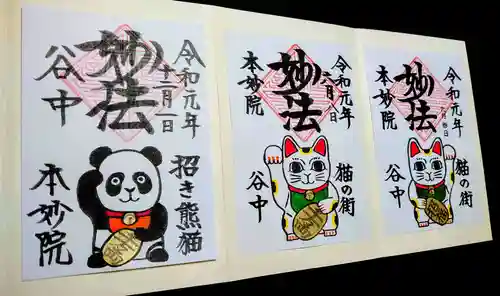 令和元年
十二月一日
妙法
谷中
招き熊猫
本妙院
令和元年
六月
妙法
本妙院
猫の街
谷中
令和元年
妙法
本妙院
猫の街
谷中